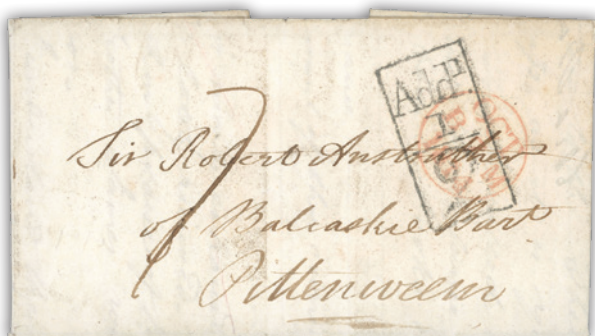 Addl
1
2
OCT
B M
7
Sir Robert Anstruther
of Balcaskie Bart
Pittenweem